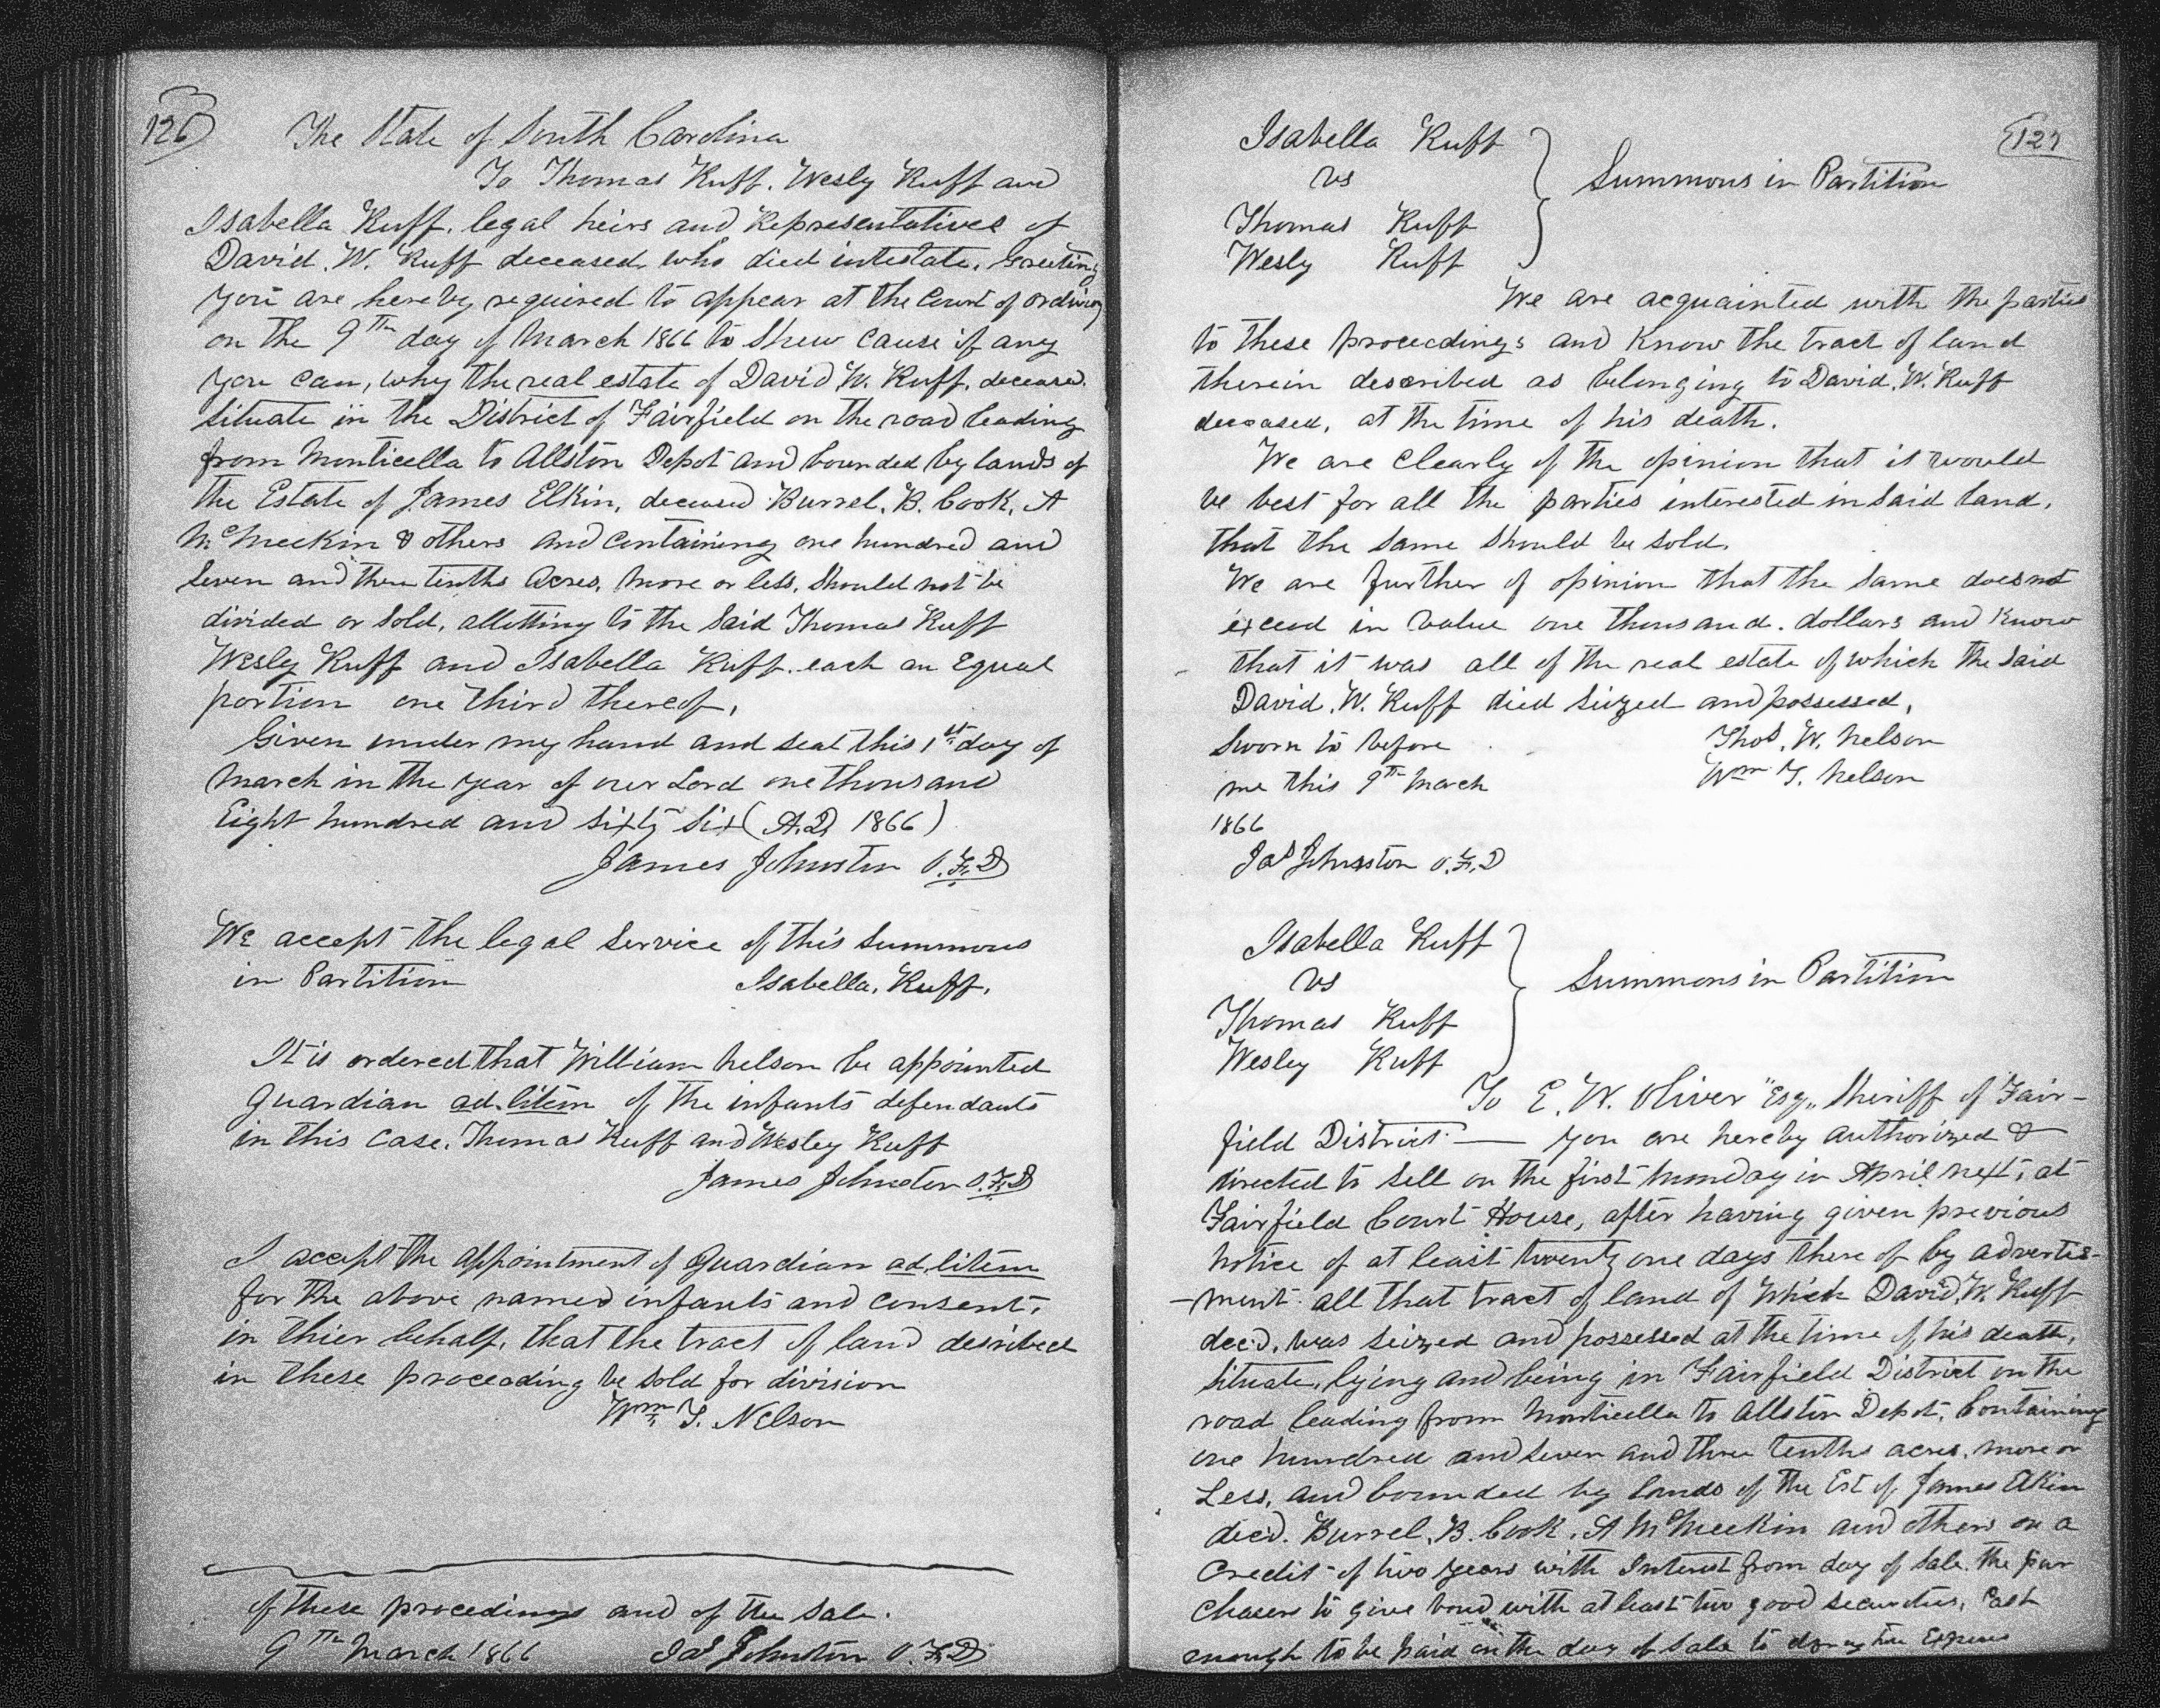 126
The State of South Carolina
To Thomas Ruff. Wesly Ruff and
Isabella Ruff. legal heirs and Representatives of
David. W. Ruff deceased, who died intestate. Greeting
You are hereby required to appear at the Court of ordinary
on the 9th day of March 1866 to Shew Cause if any
you can, why the real estate of David W. Ruff, deceased.
Situate in the District of Fairfield on the road leading
from Monticella to Allston Depot and bounded by lands of
the Estate of James Elkin, deceased Burrel. B. Cook, A
McMeekin & others and Containing one hundred and
Seven and three tenths Acres, more or less, Should not be
divided or Sold, allotting to the Said Thomas Ruff
Wesly Ruff and Isabella Ruff. each an Equal
portion one third thereof,
Given under my hand and seal this 1st day of
March in the year of our Lord one thousand
Eight hundred and Sixty Six (A.D. 1866)
James Johnston O.F.D
We accept the legal Service of this Summons
in Partition Isabella. Ruff.
It is ordered that William Nelson be appointed
Guardian ad. litem of the infants defendants
in this Case. Thomas Ruff and Wesley Ruff
James Johnston O.F.D
I accept the appointment of Guardian ad. litem
for the above named infants and Consent,
in thier behalf, that the tract of land desribed
in these proceeding be Sold for division
Wm T. Nelson
of these procedings and of the Sale.
9th March 1866 Jas Johnston O.F.D
127
Isabella Ruff
vs
Thomas Ruff
Wesly Ruff
Summons in Partition
We are acquainted with the parties
to these proceedings and Know the tract of land
therein described as belonging to David. W. Ruff
deceased, at the time of his death.
We are Clearly of the opinion that it would
be best for all the parties interested in Said land.
that the Same Should be Sold.
We are further of opinion that the Same does not
exceed in Value one thousand. dollars and Know
that it was all of the real estate of which the Said
David. W. Ruff died Seized and possessed,
Sworn to before Thos. W. Nelson
me this 9th March Wm T. Nelson
1866
Jas Johnston O.F.D
Isabella Ruff
vs
Thomas Ruff
Wesley Ruff
Summons in Partition
To E. W. Oliver "Esq" Sheriff of Fair-
field District — You are hereby authorized &
directed to Sell on the first Munday in April next, at
Fairfield Court House, after having given previous
notice of at least twenty one days there of by advertis-
-ment. all that tract of land of Which David. W. Ruff
dec'd. was Seized and possessed at the time of his death,
Situate, lying and being in Fairfield District on the
road leading from Monticella to Allston Depot, Containing
one hundred and Seven and three tenths acres, more or
Less, and bounded by lands of the Est of James Elkin
dec'd. Burrel. B. Cook. A McMeekin and others on a
Credit of two years with Interest from day of Sale. the pur
chasers to give bond with at least two good securities, Cash
enough to be paid on the day of Sale to the Expenses